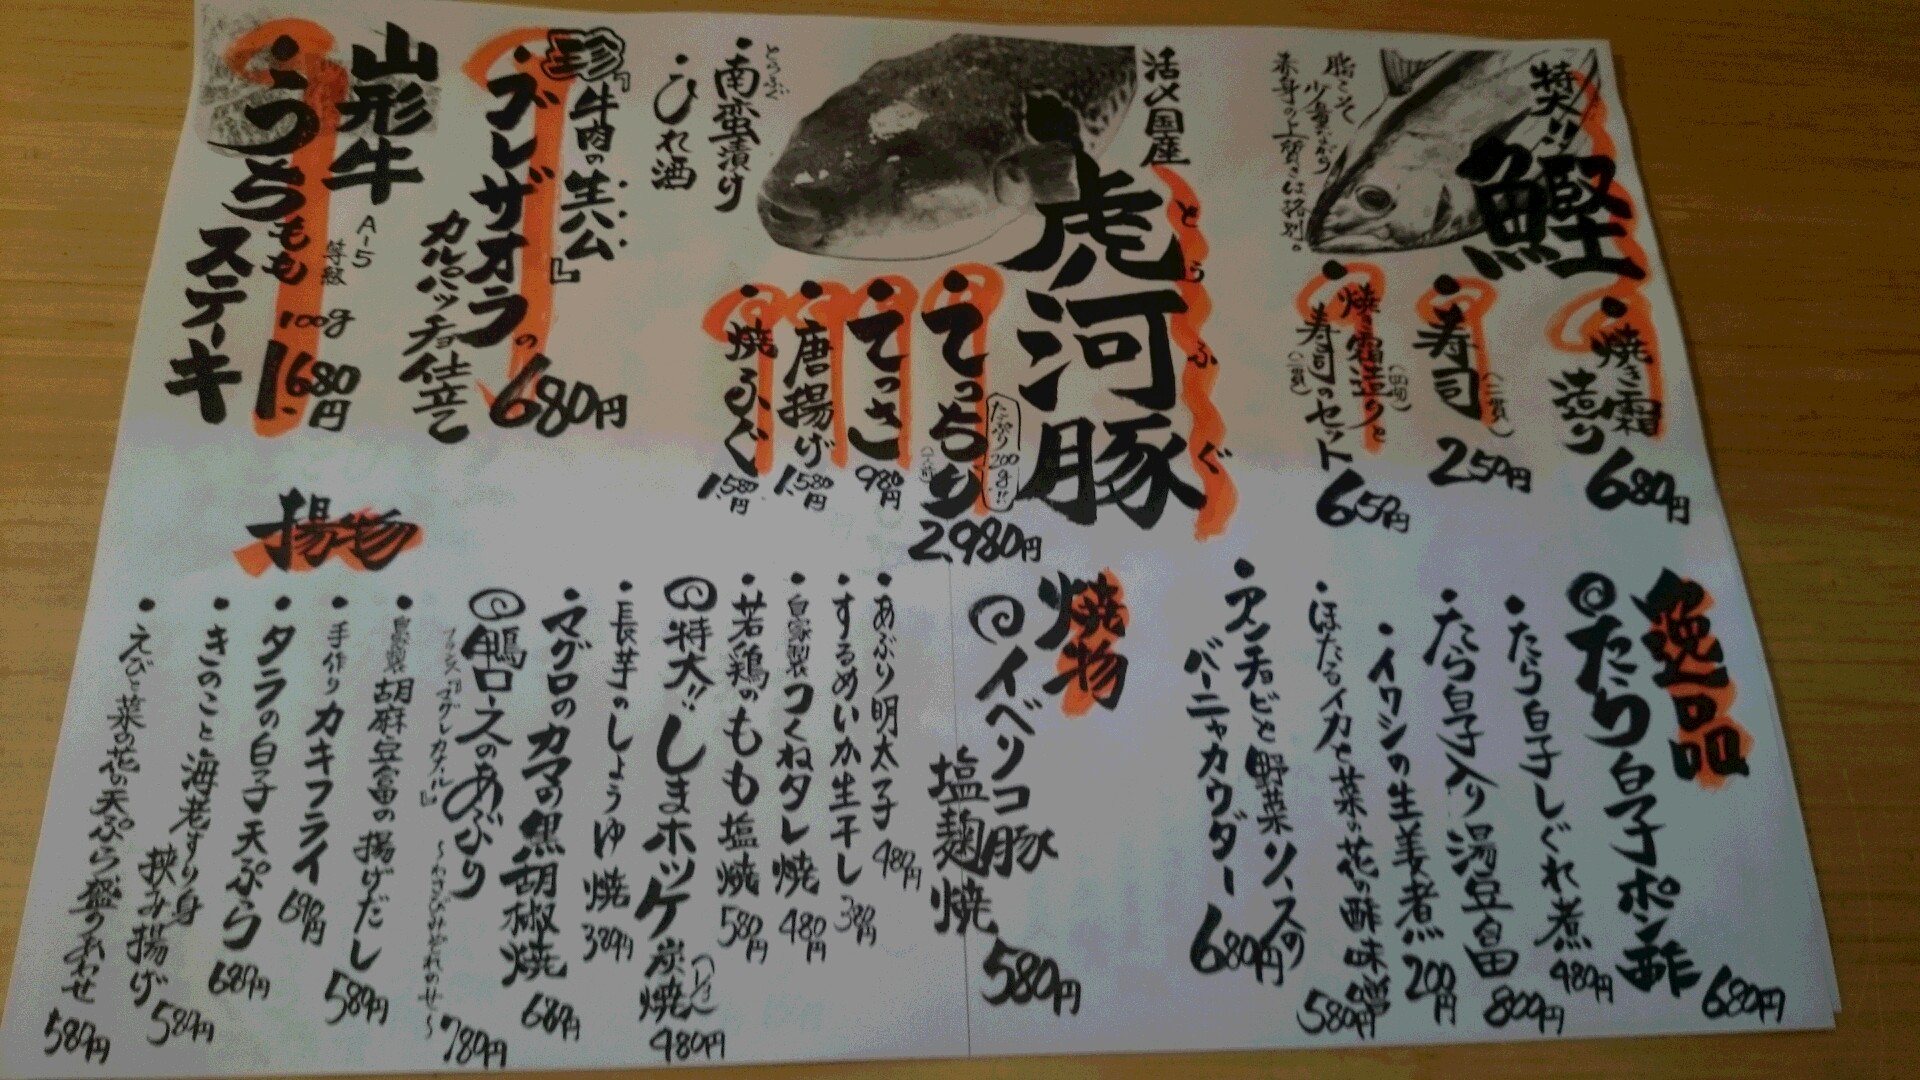 特大!!
鰹
脂こそ
少量ながら
赤身の上質さは格別。
・焼き霜
造り
680円
・寿司
(二貫)
250円
・焼き霜造りと
(四切)
寿司のセット
(二貫)
650円
活〆国産
虎河豚
とらふぐ
・てっちり
たっぷり200g!!
2,980円
・てっさ
980円
・唐揚げ
1,580円
・焼ふぐ
1,580円
とらふぐ
・南蛮漬け
・ひれ酒
珍
『牛肉の生ハム』
・ブレザオラの
カルパッチョ仕立て
680円
山形牛
A-5
等級
・うちもも
100g
ステーキ
1,680円
逸品
たら白子ポン酢
680円
・たら白子しぐれ煮
480円
・たら白子入り湯豆富
800円
・イワシの生姜煮
200円
・ほたるイカと菜の花の酢味噌
580円
・アンチョビと野菜ソースの
バーニャカウダー
680円
焼物
イベリコ豚
塩麹焼
580円
・あぶり明太子
480円
・するめいか生干し
380円
・自家製つくねタレ焼
480円
・若鶏のもも塩焼
580円
特大!!しまホッケ炭焼
480円
・長芋のしょうゆ焼
380円
・マグロのカマの黒胡椒焼
680円
鴨ロースのあぶり
フランス『マグレカナール』
〜わさびみぞれのせ〜
780円
揚物
・自家製胡麻豆富の揚げだし
580円
・手作りカキフライ
690円
・タラの白子天ぷら
680円
・きのこと海老すり身
挟み揚げ
580円
・えびと菜の花の天ぷら盛りあわせ
580円